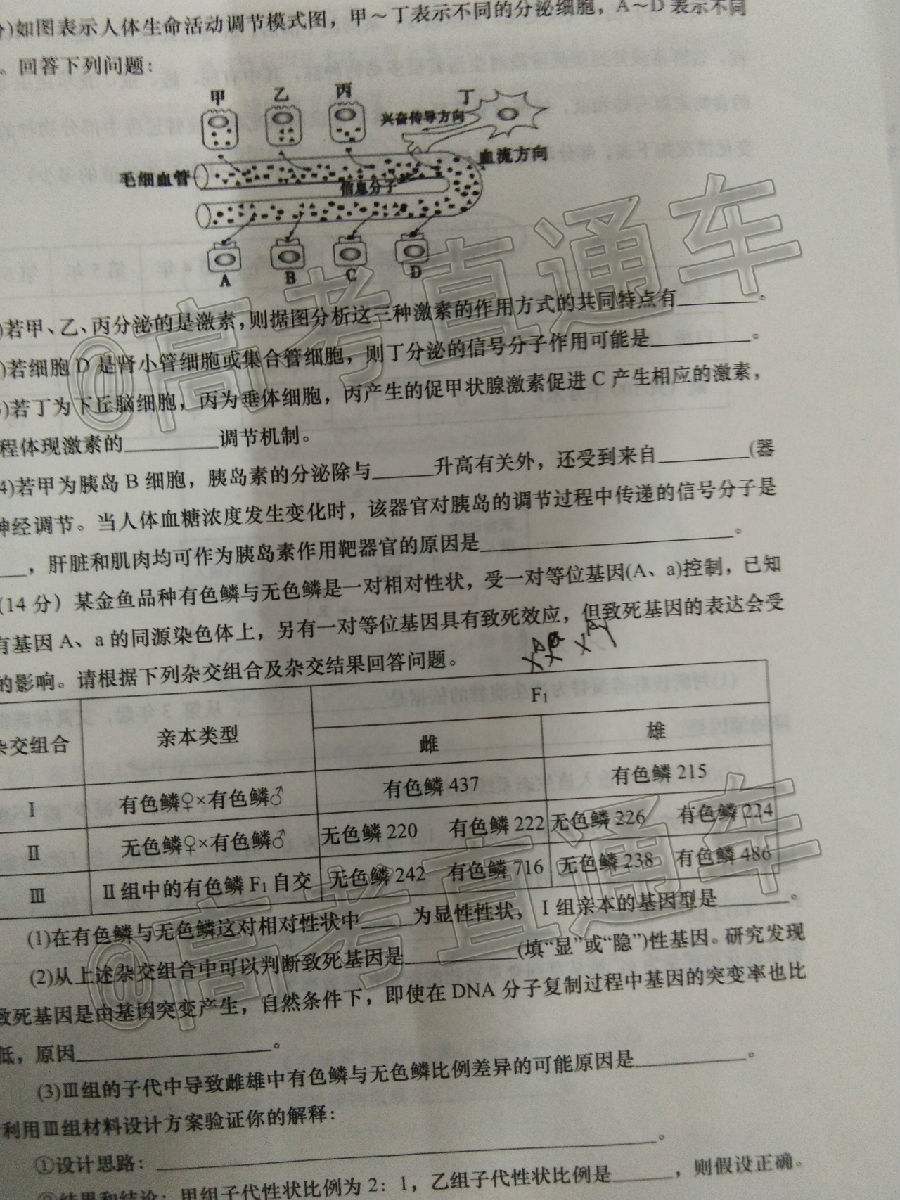 分)如图表示人体生命活动调节模式图，甲～丁表示不同的分泌细胞，A～D 表示不同
。回答下列问题：
甲 乙 丙 丁
兴奋传导方向
血流方向
毛细血管
信息分子
A B C D
)若甲、乙、丙分泌的是激素，则据图分析这三种激素的作用方式的共同特点有________。
)若细胞 D 是肾小管细胞或集合管细胞，则丁分泌的信号分子作用可能是________。
)若丁为下丘脑细胞，丙为垂体细胞，丙产生的促甲状腺激素促进 C 产生相应的激素，
程体现激素的________调节机制。
4)若甲为胰岛 B 细胞，胰岛素的分泌除与_____升高有关外，还受到来自________(器
神经调节。当人体血糖浓度发生变化时，该器官对胰岛的调节过程中传递的信号分子是
___，肝脏和肌肉均可作为胰岛素作用靶器官的原因是____________________。
(14 分) 某金鱼品种有色鳞与无色鳞是一对相对性状，受一对等位基因(A、a)控制，已知
有基因 A、a 的同源染色体上，另有一对等位基因具有致死效应，但致死基因的表达会受
的影响。请根据下列杂交组合及杂交结果回答问题。
杂交组合 亲本类型 F₁
雌 雄
Ⅰ 有色鳞♀×有色鳞♂ 有色鳞 437 有色鳞 215
Ⅱ 无色鳞♀×有色鳞♂ 无色鳞 220 有色鳞 222 无色鳞 226 有色鳞 224
Ⅲ Ⅱ组中的有色鳞 F₁ 自交 无色鳞 242 有色鳞 716 无色鳞 238 有色鳞 486
(1)在有色鳞与无色鳞这对相对性状中_____为显性性状，Ⅰ组亲本的基因型是______。
(2)从上述杂交组合中可以判断致死基因是__________(填“显”或“隐”)性基因。研究发现
致死基因是由基因突变产生，自然条件下，即使在 DNA 分子复制过程中基因的突变率也比
低，原因________________。
(3)Ⅲ组的子代中导致雌雄中有色鳞与无色鳞比例差异的可能原因是__________。
利用Ⅲ组材料设计方案验证你的解释：
①设计思路：________________________________________。
②结果和结论：甲组子代性状比例为 2：1，乙组子代性状比例是______，则假设正确。
@高考直通车
@高考直通车